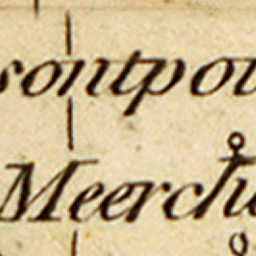 sontpou
Meerchu